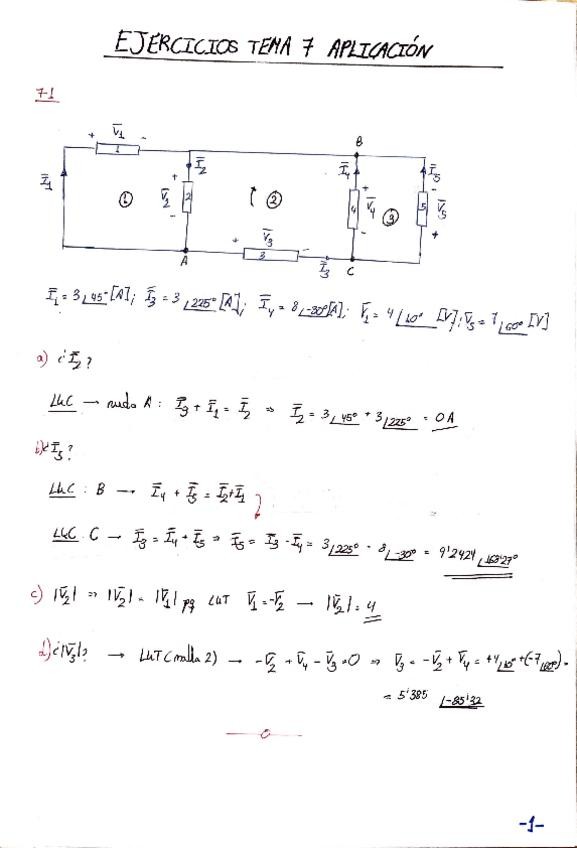 EJERCICIOS TEMA 7 APLICACIÓN
7-1
+ V̅₁ - B
1
I̅₁ ① I̅₂ + V̅₂ - 2 ② I̅₄ + V̅₄ - 4 ③ I̅₅ - V̅₅ + 5
+ V̅₃ -
3
A I̅₃ C
I̅₁ = 3∠45° [A]; I̅₃ = 3∠225° [A]; I̅₄ = 8∠-30° [A]; V̅₁ = 4∠10° [V]; V̅₅ = 7∠60° [V]
a) ¿I̅₂?
LKC → nudo A: I̅₃ + I̅₁ = I̅₂ ⇒ I̅₂ = 3∠45° + 3∠225° = 0A
b) ¿I̅₅?
LKC: B → I̅₄ + I̅₅ = I̅₂+I̅₁
LKC C → I̅₃ = I̅₄ + I̅₅ ⇒ I̅₅ = I̅₃ - I̅₄ = 3∠225° - 8∠-30° = 9'2424∠168'27°
c) |V̅₂| ⇒ |V̅₂| = |V̅₁| pq LKT V̅₁ = -V̅₂ → |V̅₂| = 4
d) ¿|V̅₃|? → LKT (malla 2) → -V̅₂ + V̅₄ - V̅₃ = 0 ⇒ V̅₃ = -V̅₂ + V̅₄ = +4∠10° + (-7∠60°) =
= 5'385 ∠-85'32
-1-